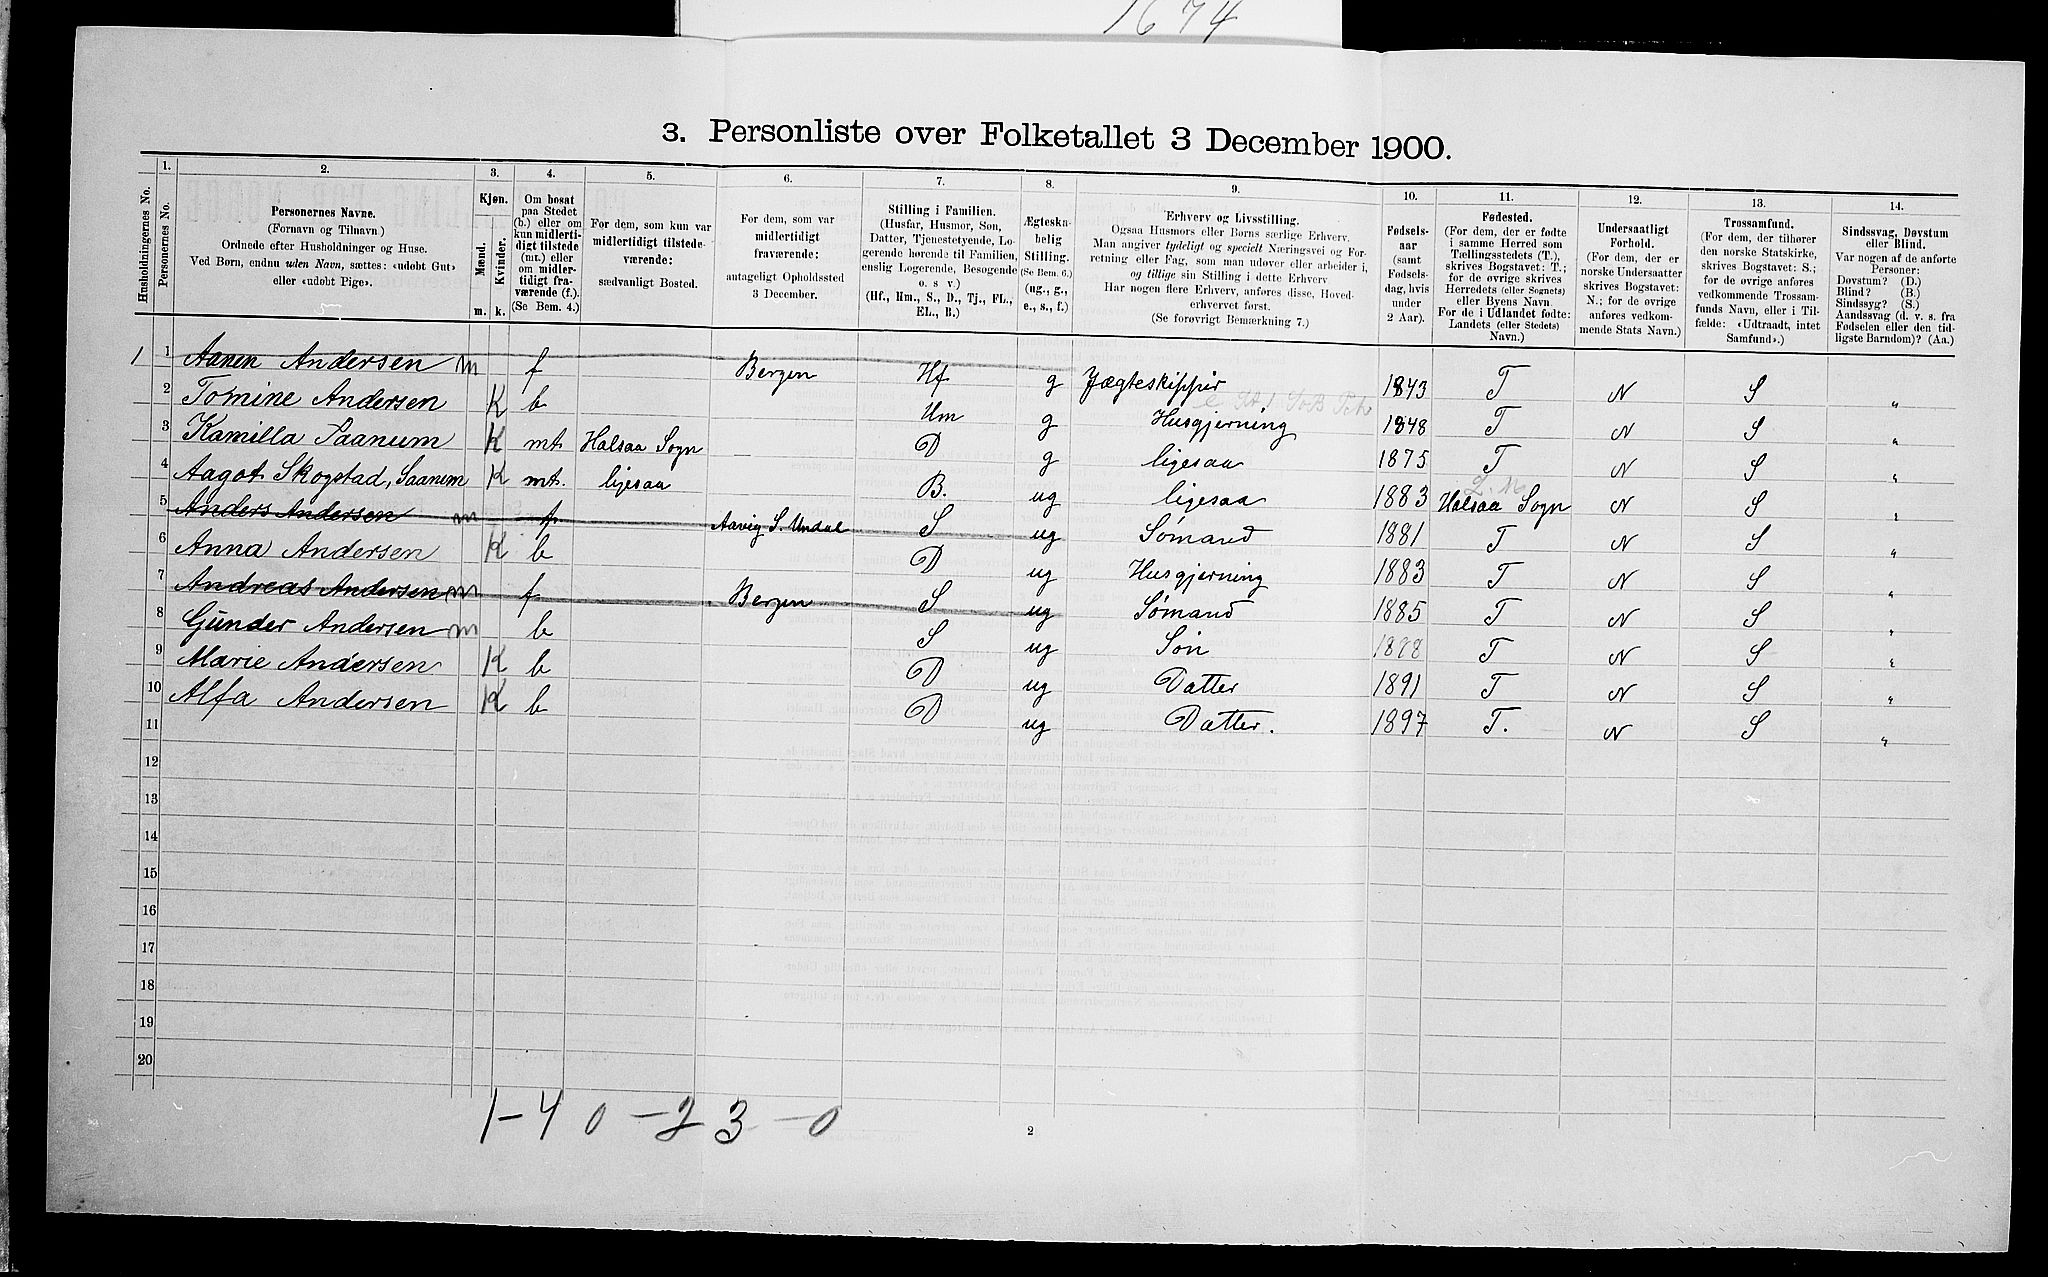 1674
3. Personliste over Folketallet 3 December 1900.
Husholdningernes No.
1. Personernes No.
2. Personernes Navne. (Fornavn og Tilnavn) Ordnede efter Husholdninger og Huse. Ved Børn, endnu uden Navn, sættes: «udøbt Gut» eller «udøbt Pige».
3. Kjøn. Mænd. m. Kvinder. k.
4. Om bosat paa Stedet (b.) eller om kun midlertidigt tilstede (mt.) eller om midlertidigt fraværende (f.). (Se Bem. 4.)
5. For dem, som kun var midlertidigt tilstedeværende: sædvanligt Bosted.
6. For dem, som var midlertidigt fraværende: antageligt Opholdssted 3 December.
7. Stilling i Familien. (Husfar, Husmor, Søn, Datter, Tjenestetyende, Logerende hørende til Familien, enslig Logerende, Besøgende o. s v.) (Hf., Hm., S., D., Tj., FL., EL., B.)
8. Ægteskabelig Stilling. (Se Bem. 6.) (ug., g., e., s., f.)
9. Erhverv og Livsstilling. Ogsaa Husmors eller Børns særlige Erhverv. Man angiver tydeligt og specielt Næringsvei og Forretning eller Fag, som man udøver eller arbeider i, og tillige sin Stilling i dette Erhverv Har nogen flere Erhverv, anføres disse, Hovederhvervet først. (Se forøvrigt Bemærkning 7.)
10. Fødselsaar (samt Fødselsdag, hvis under 2 Aar).
11. Fødested. (For dem, der er fødte i samme Herred som Tællingsstedets (T.), skrives Bogstavet: T.; for de øvrige skrives Herredets (eller Sognets) eller Byens Navn. For de i Udlandet fødte: Landets (eller Stedets) Navn.)
12. Undersaatligt Forhold. (For dem, der er norske Undersaatter skrives Bogstavet: N.; for de øvrige anføres vedkommende Stats Navn.)
13. Trossamfund. (For dem, der tilhører den norske Statskirke, skrives Bogstavet: S.; for de øvrige anføres vedkommende Trossamfunds Navn, eller i Tilfælde: «Udtraadt, intet Samfund».)
14. Sindssvag, Døvstum eller Blind. Var nogen af de anførte Personer: Døvstum? (D.) Blind? (B.) Sindssyg? (S.) Aandssvag (d. v. s. fra Fødselen eller den tidligste Barndom)? (Aa.)
1 1 Aanen Andersen m f Bergen Hf g Jægteskipper 1843 T N S „
2 Tomine Andersen K b Hm g Husgjerning 1848 T N S „
3 Kamilla Saanum K mt Halsaa Sogn D g ligesaa 1875 T N S „
4 Aagot Skogstad, Saanum K mt. ligesaa B. ug ligesaa 1883 Halsaa Sogn N S „
5 Anders Andersen m f Aavig S. Undal S ug Sømand 1881 T N S „
6 Anna Andersen K b D ug Husgjerning 1883 T N S „
7 Andreas Andersen m f Bergen S ug Sømand 1885 T N S „
8 Gunder Andersen m b S ug Søn 1888 T N S „
9 Marie Andersen K b D ug Datter 1891 T N S „
10 Alfa Andersen K b D ug Datter. 1897 T. N S „
11
12
13
14
15
16
17
18
19
20
1-40-23-0
2